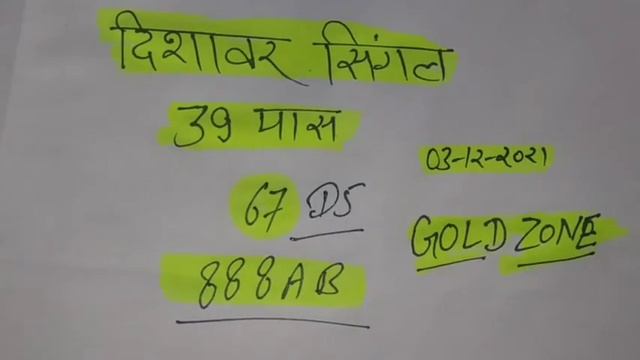 दिशावर सिंगल
39 पास
03-12-2021
67 DS
GOLD ZONE
888AB